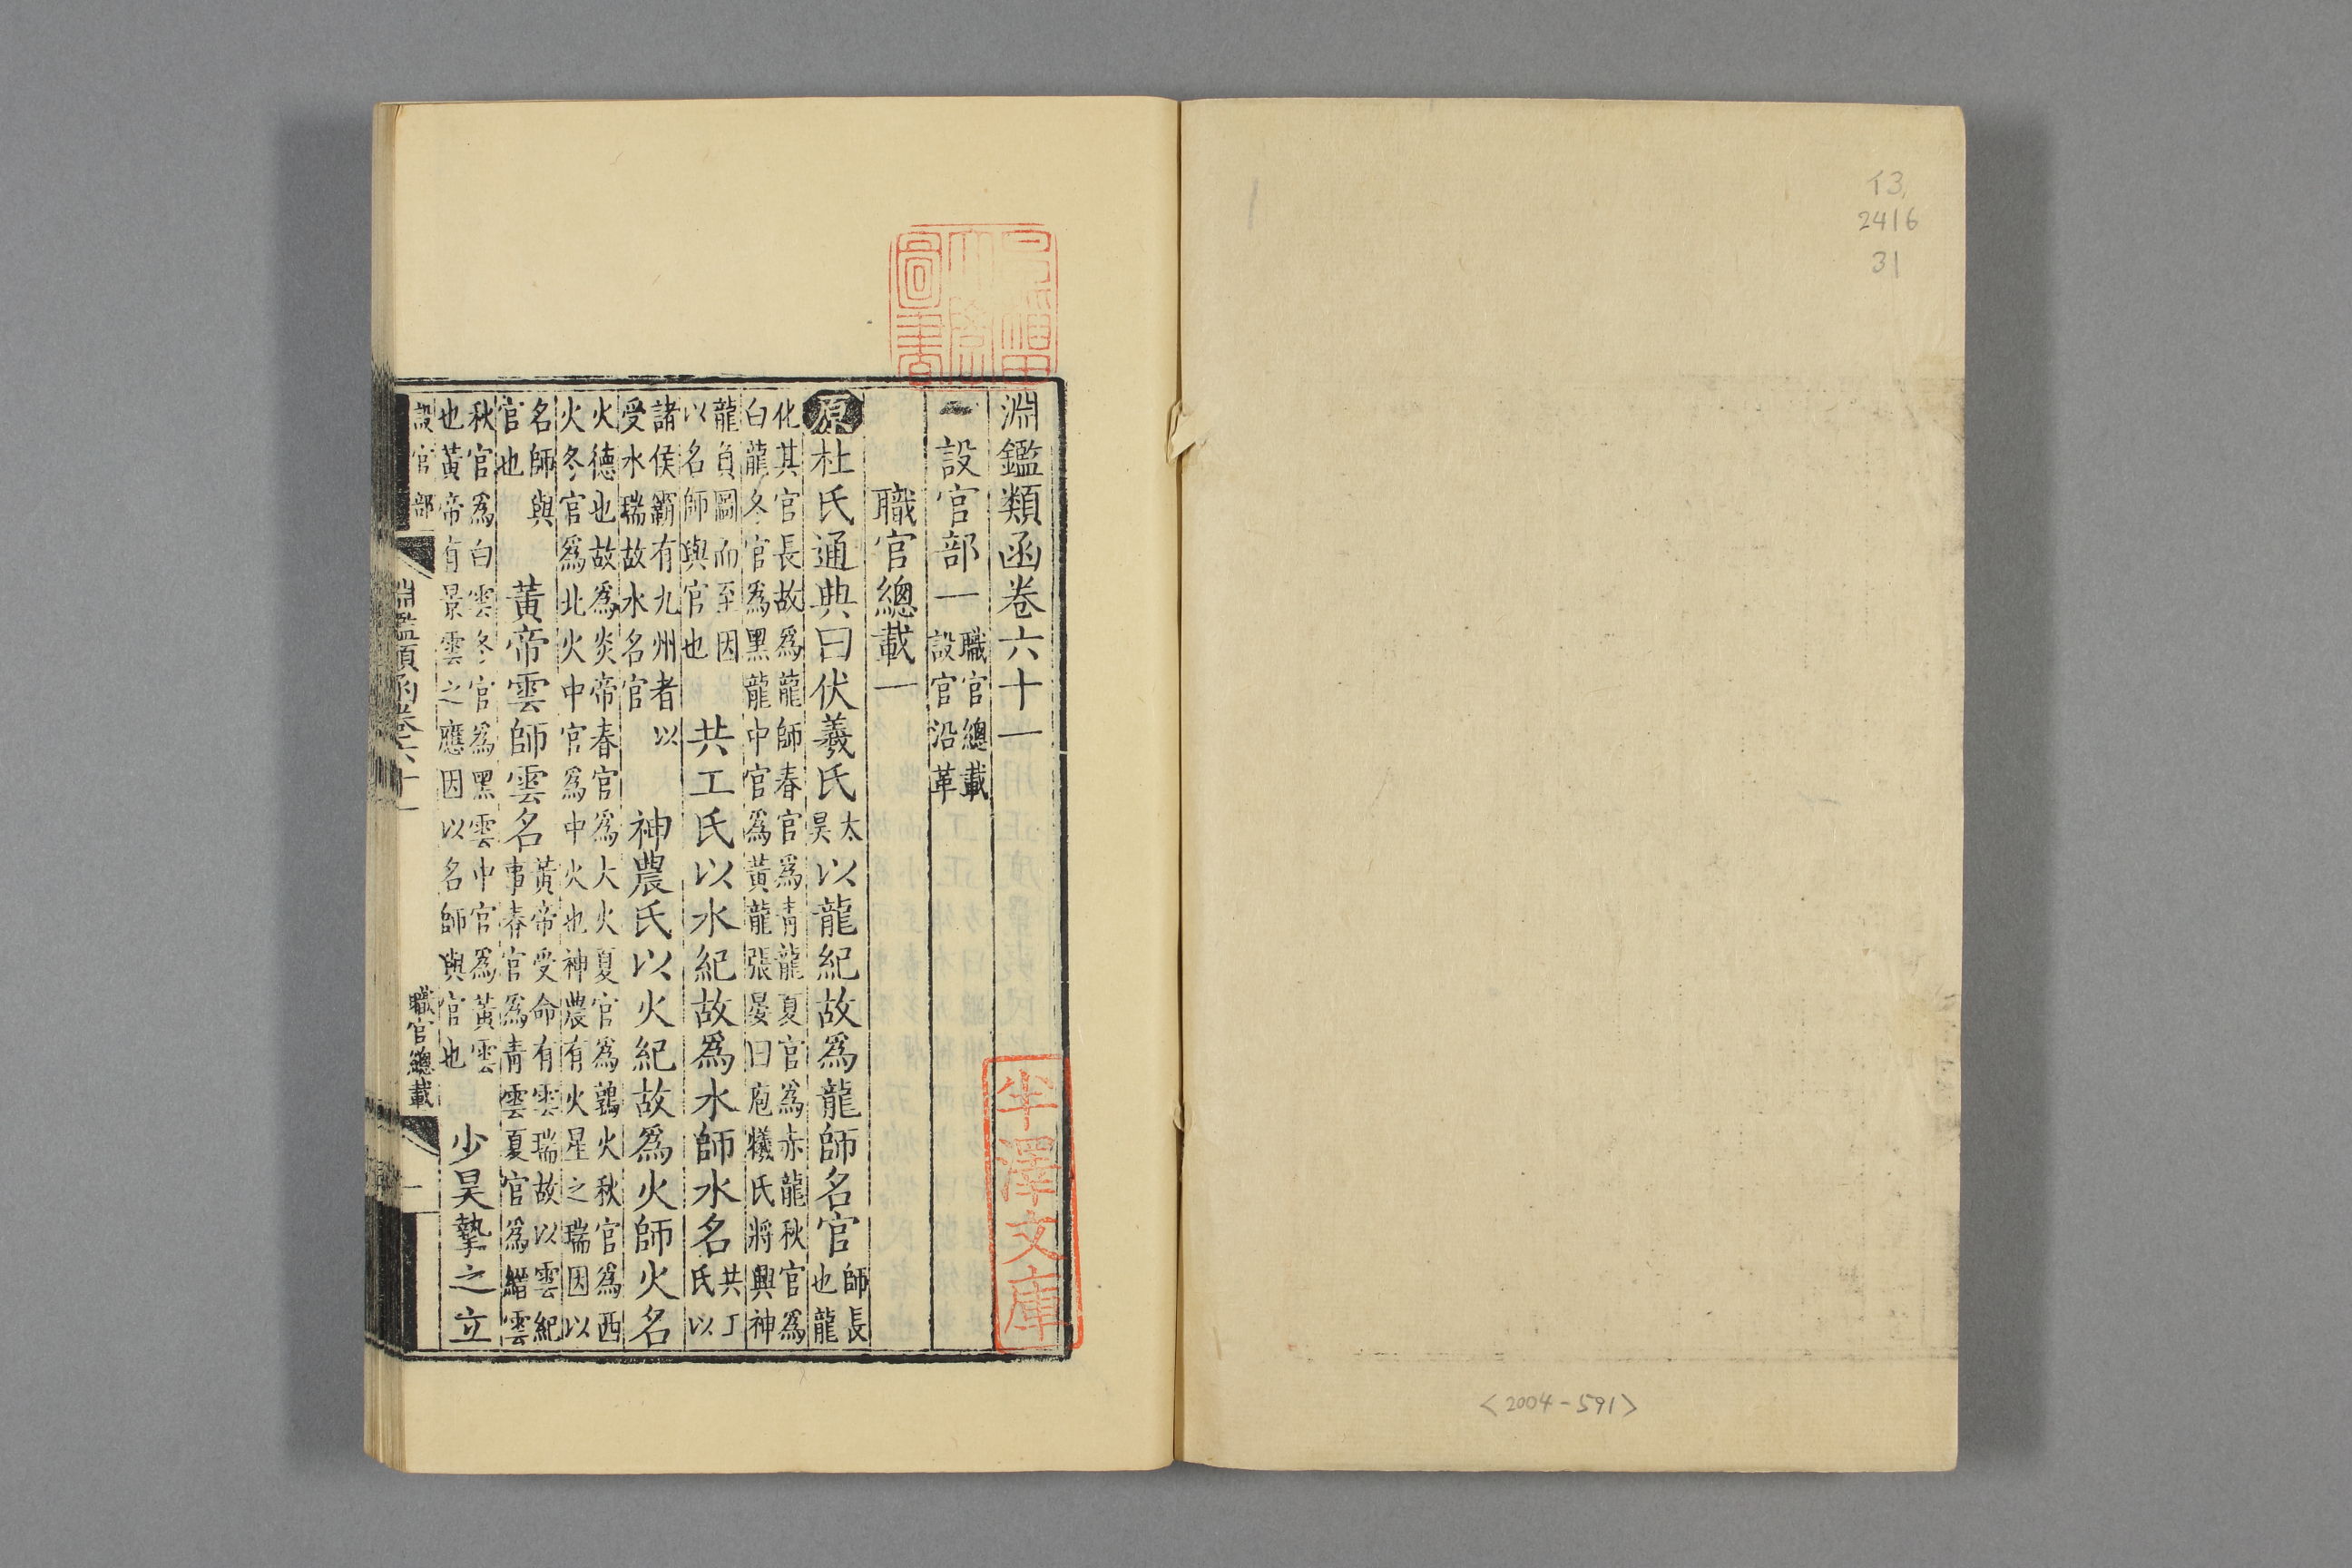 イ3
2416
31
<2004-591>
早稲田
大學
圖書
淵鑑類函卷六十一
一設官部一職官總載設官沿革
職官總載一
原杜氏通典曰伏羲氏太昊以龍紀故爲龍師名官師長也龍
化其官長故爲龍師春官爲青龍夏官爲赤龍秋官爲
白龍冬官爲黑龍中官爲黃龍張晏曰庖犧氏將興神
龍負圖而至因以名師與官也共工氏以水紀故爲水師水名共工氏以
諸侯霸有九州者以受水瑞故水名官神農氏以火紀故爲火師火名
火德也故爲炎帝春官爲大火夏官爲鶉火秋官爲西
火冬官爲北火中官爲中火也神農有火星之瑞因以
名師與官也黃帝雲師雲名黃帝受命有雲瑞故以雲紀事春官爲青雲夏官爲縉雲
秋官爲白雲冬官爲黑雲中官爲黃雲也黃帝有景雲之應因以名師與官也少昊摯之立
設官部
淵鑑類函卷六十一
職官總載
一
半澤文庫